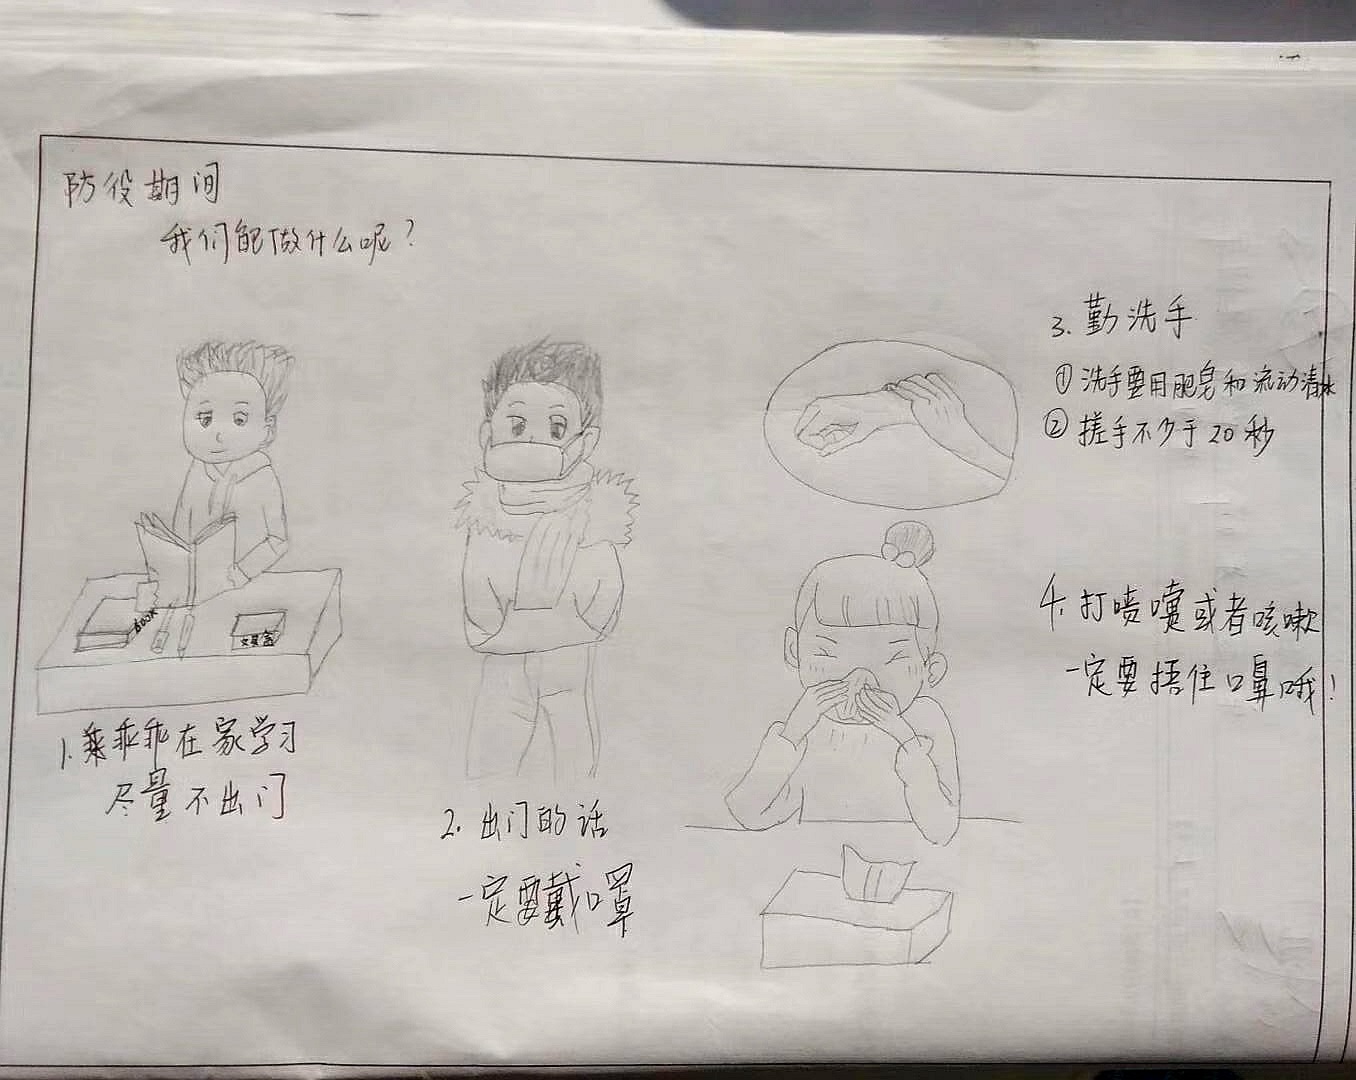 防役期间
我们能做什么呢?
BOOK
文具盒
1. 乘乖乖在家学习
尽量不出门
2. 出门的话
一定要戴口罩
3. 勤洗手
① 洗手要用肥皂和流动清水
② 搓手不少于20秒
4. 打喷嚏或者咳嗽
一定要捂住口鼻哦!